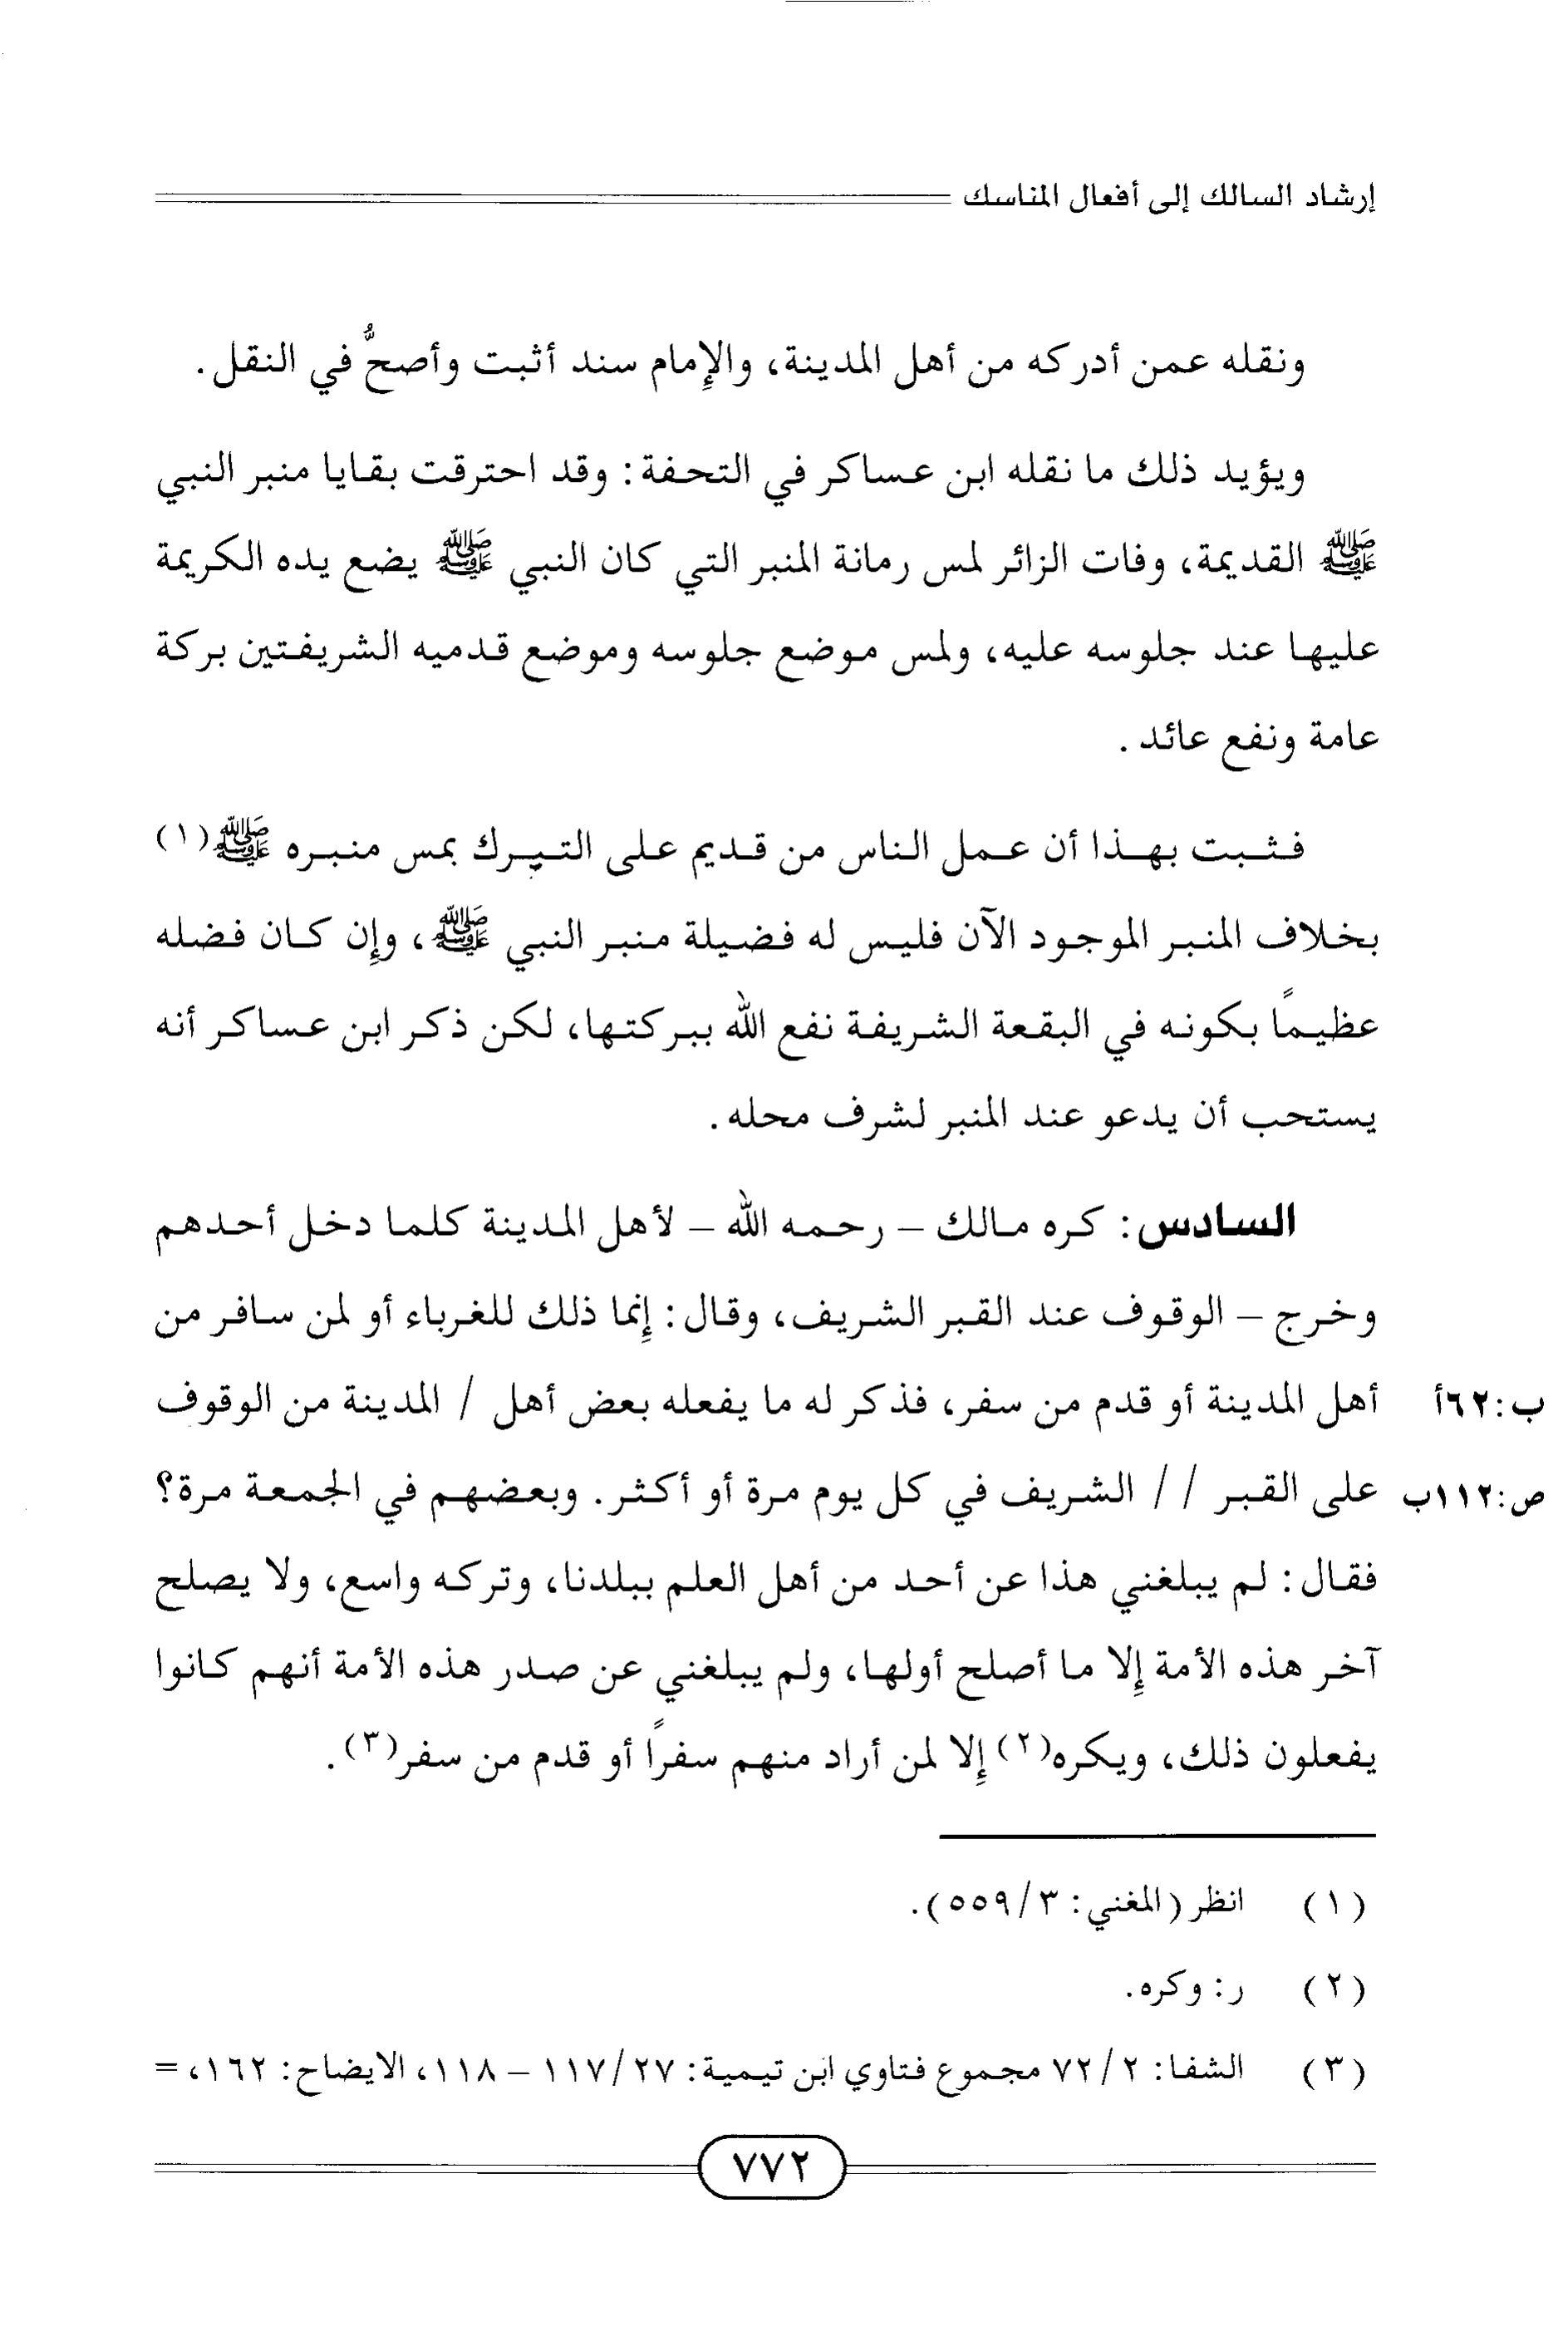 إرشاد السالك إلى أفعال المناسك
ونقله عمن أدركه من أهل المدينة، والإمام سند أثبت وأصحُّ في النقل.
ويؤيد ذلك ما نقله ابن عساكر في التحفة: وقد احترقت بقايا منبر النبي
ﷺ القديمة، وفات الزائر لمس رمانة المنبر التي كان النبي ﷺ يضع يده الكريمة
عليها عند جلوسه عليه، ولمس موضع جلوسه وموضع قدميه الشريفتين بركة
عامة ونفع عائد.
فثبت بهذا أن عمل الناس من قديم على التبرك بمس منبره ﷺ(١)
بخلاف المنبر الموجود الآن فليس له فضيلة منبر النبي ﷺ، وإن كان فضله
عظيماً بكونه في البقعة الشريفة نفع الله ببركتها، لكن ذكر ابن عساكر أنه
يستحب أن يدعو عند المنبر لشرف محله.
السادس: كره مالك – رحمه الله – لأهل المدينة كلما دخل أحدهم
وخرج – الوقوف عند القبر الشريف، وقال: إنما ذلك للغرباء أو لمن سافر من
أهل المدينة أو قدم من سفر، فذكر له ما يفعله بعض أهل / المدينة من الوقوف
ب:٦٢أ
على القبر // الشريف في كل يوم مرة أو أكثر. وبعضهم في الجمعة مرة؟
ص:١١٢ب
فقال: لم يبلغني هذا عن أحد من أهل العلم ببلدنا، وتركه واسع، ولا يصلح
آخر هذه الأمة إلا ما أصلح أولها، ولم يبلغني عن صدر هذه الأمة أنهم كانوا
يفعلون ذلك، ويكره(٢) إلا لمن أراد منهم سفراً أو قدم من سفر(٣).
(١) انظر (المغني: ٣/٥٥٩).
(٢) ر: وكره.
(٣) الشفا: ٢/٧٢ مجموع فتاوي ابن تيمية: ٢٧/١١٧ – ١١٨، الايضاح: ١٦٢، =
٧٧٢